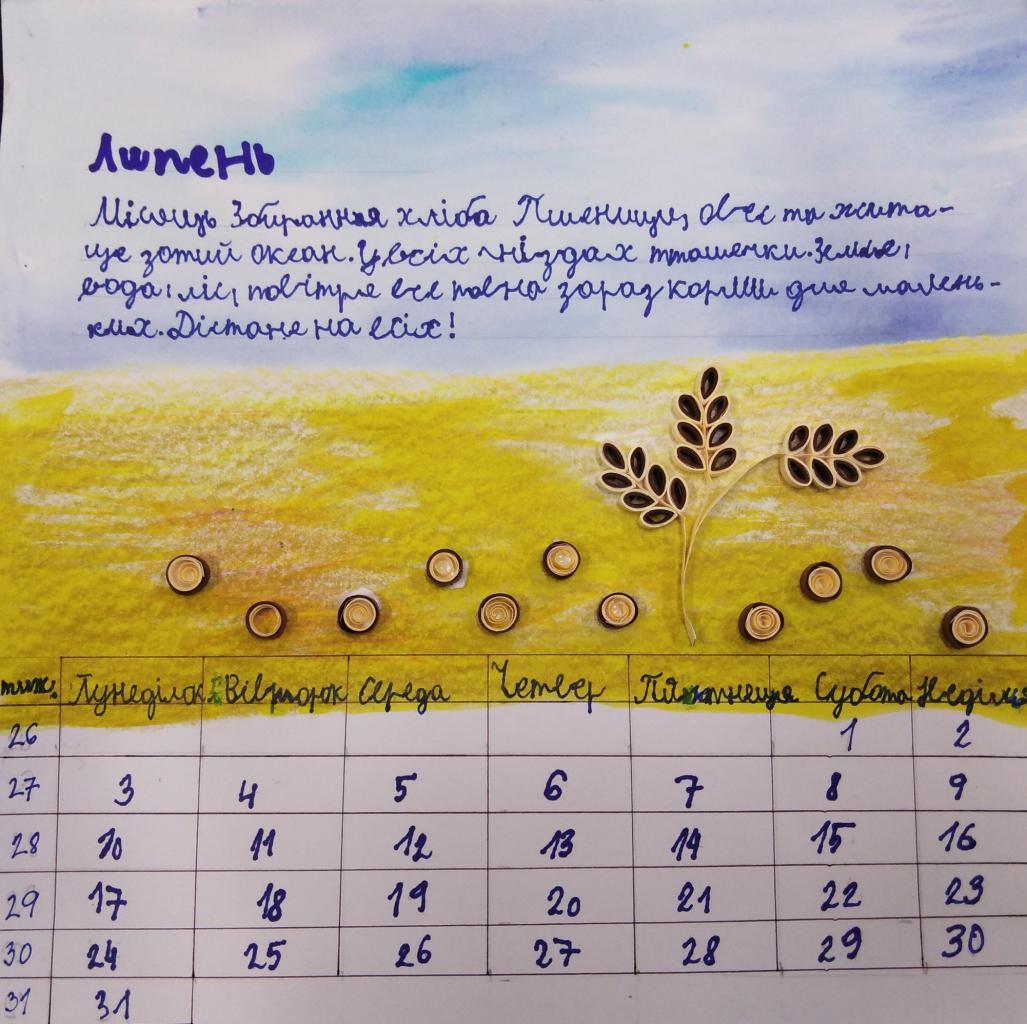 Липень
Місяць Збирання хліба Пшениця, овес та жита-
ще зотий океан. У всіх гніздах пташечки. Земля,
вода, ліс, повітря все повна зараз корми для малень-
ких. Дістане на всіх!
тиж. Пунеділок Вівторок Середа Четвер Пятниця Субота Неділя
26 1 2
27 3 4 5 6 7 8 9
28 10 11 12 13 14 15 16
29 17 18 19 20 21 22 23
30 24 25 26 27 28 29 30
31 31